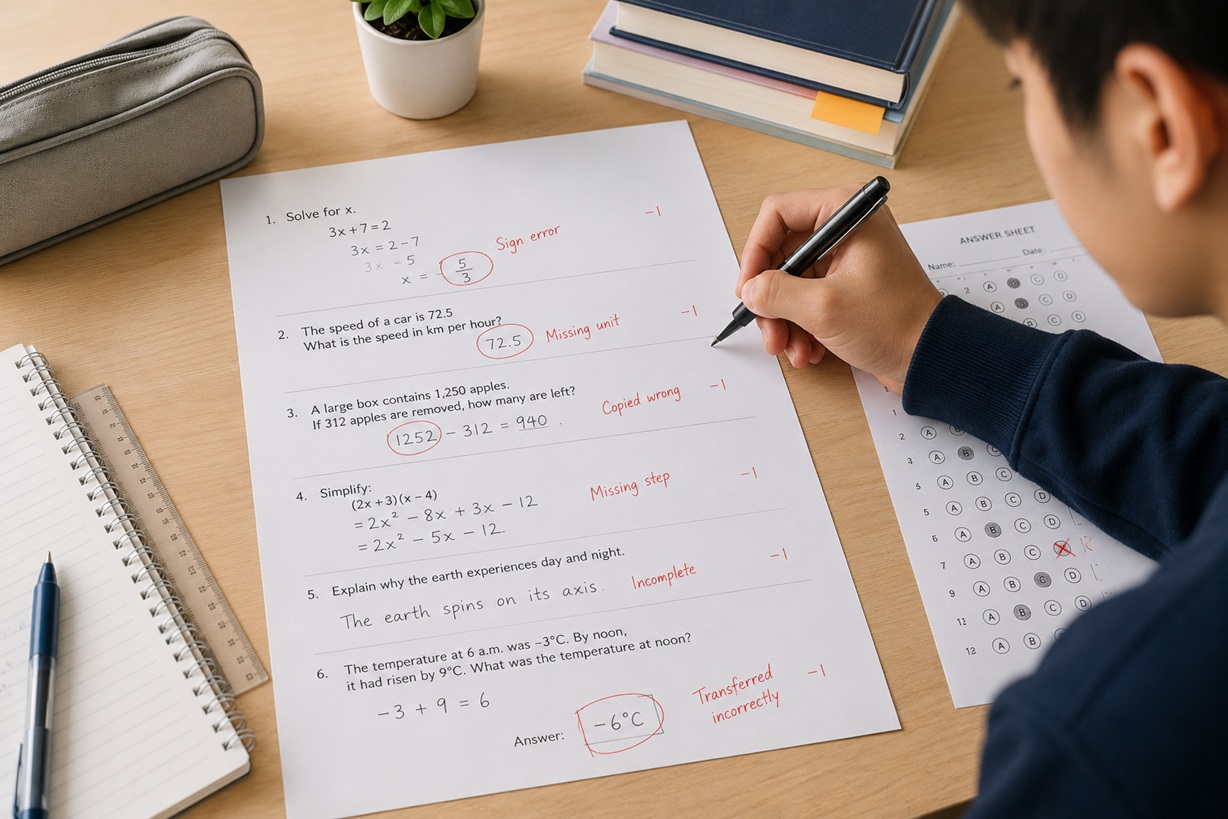 1. Solve for x.
3x + 7 = 2
3x = 2 − 7
3x − 5
x = − 5/3
Sign error
−1
2. The speed of a car is 72.5
What is the speed in km per hour?
72.5
Missing unit
−1
3. A large box contains 1,250 apples.
If 312 apples are removed, how many are left?
1252 − 312 = 940 .
Copied wrong
−1
4. Simplify:
(2x + 3)(x − 4)
= 2x² − 8x + 3x − 12
= 2x² − 5x − 12.
Missing step
−1
5. Explain why the earth experiences day and night.
The earth spins on its axis.
Incomplete
−1
6. The temperature at 6 a.m. was −3°C. By noon,
it had risen by 9°C. What was the temperature at noon?
−3 + 9 = 6
Answer: −6°C
Transferred
incorrectly
−1
ANSWER SHEET
Name:
Date:
2 A D C D
C D
2 A
3 A B
4 A B C D
5 A B C D
6 A B C D
7 A B C
9 A B C D
11 A B C D
12 A B C